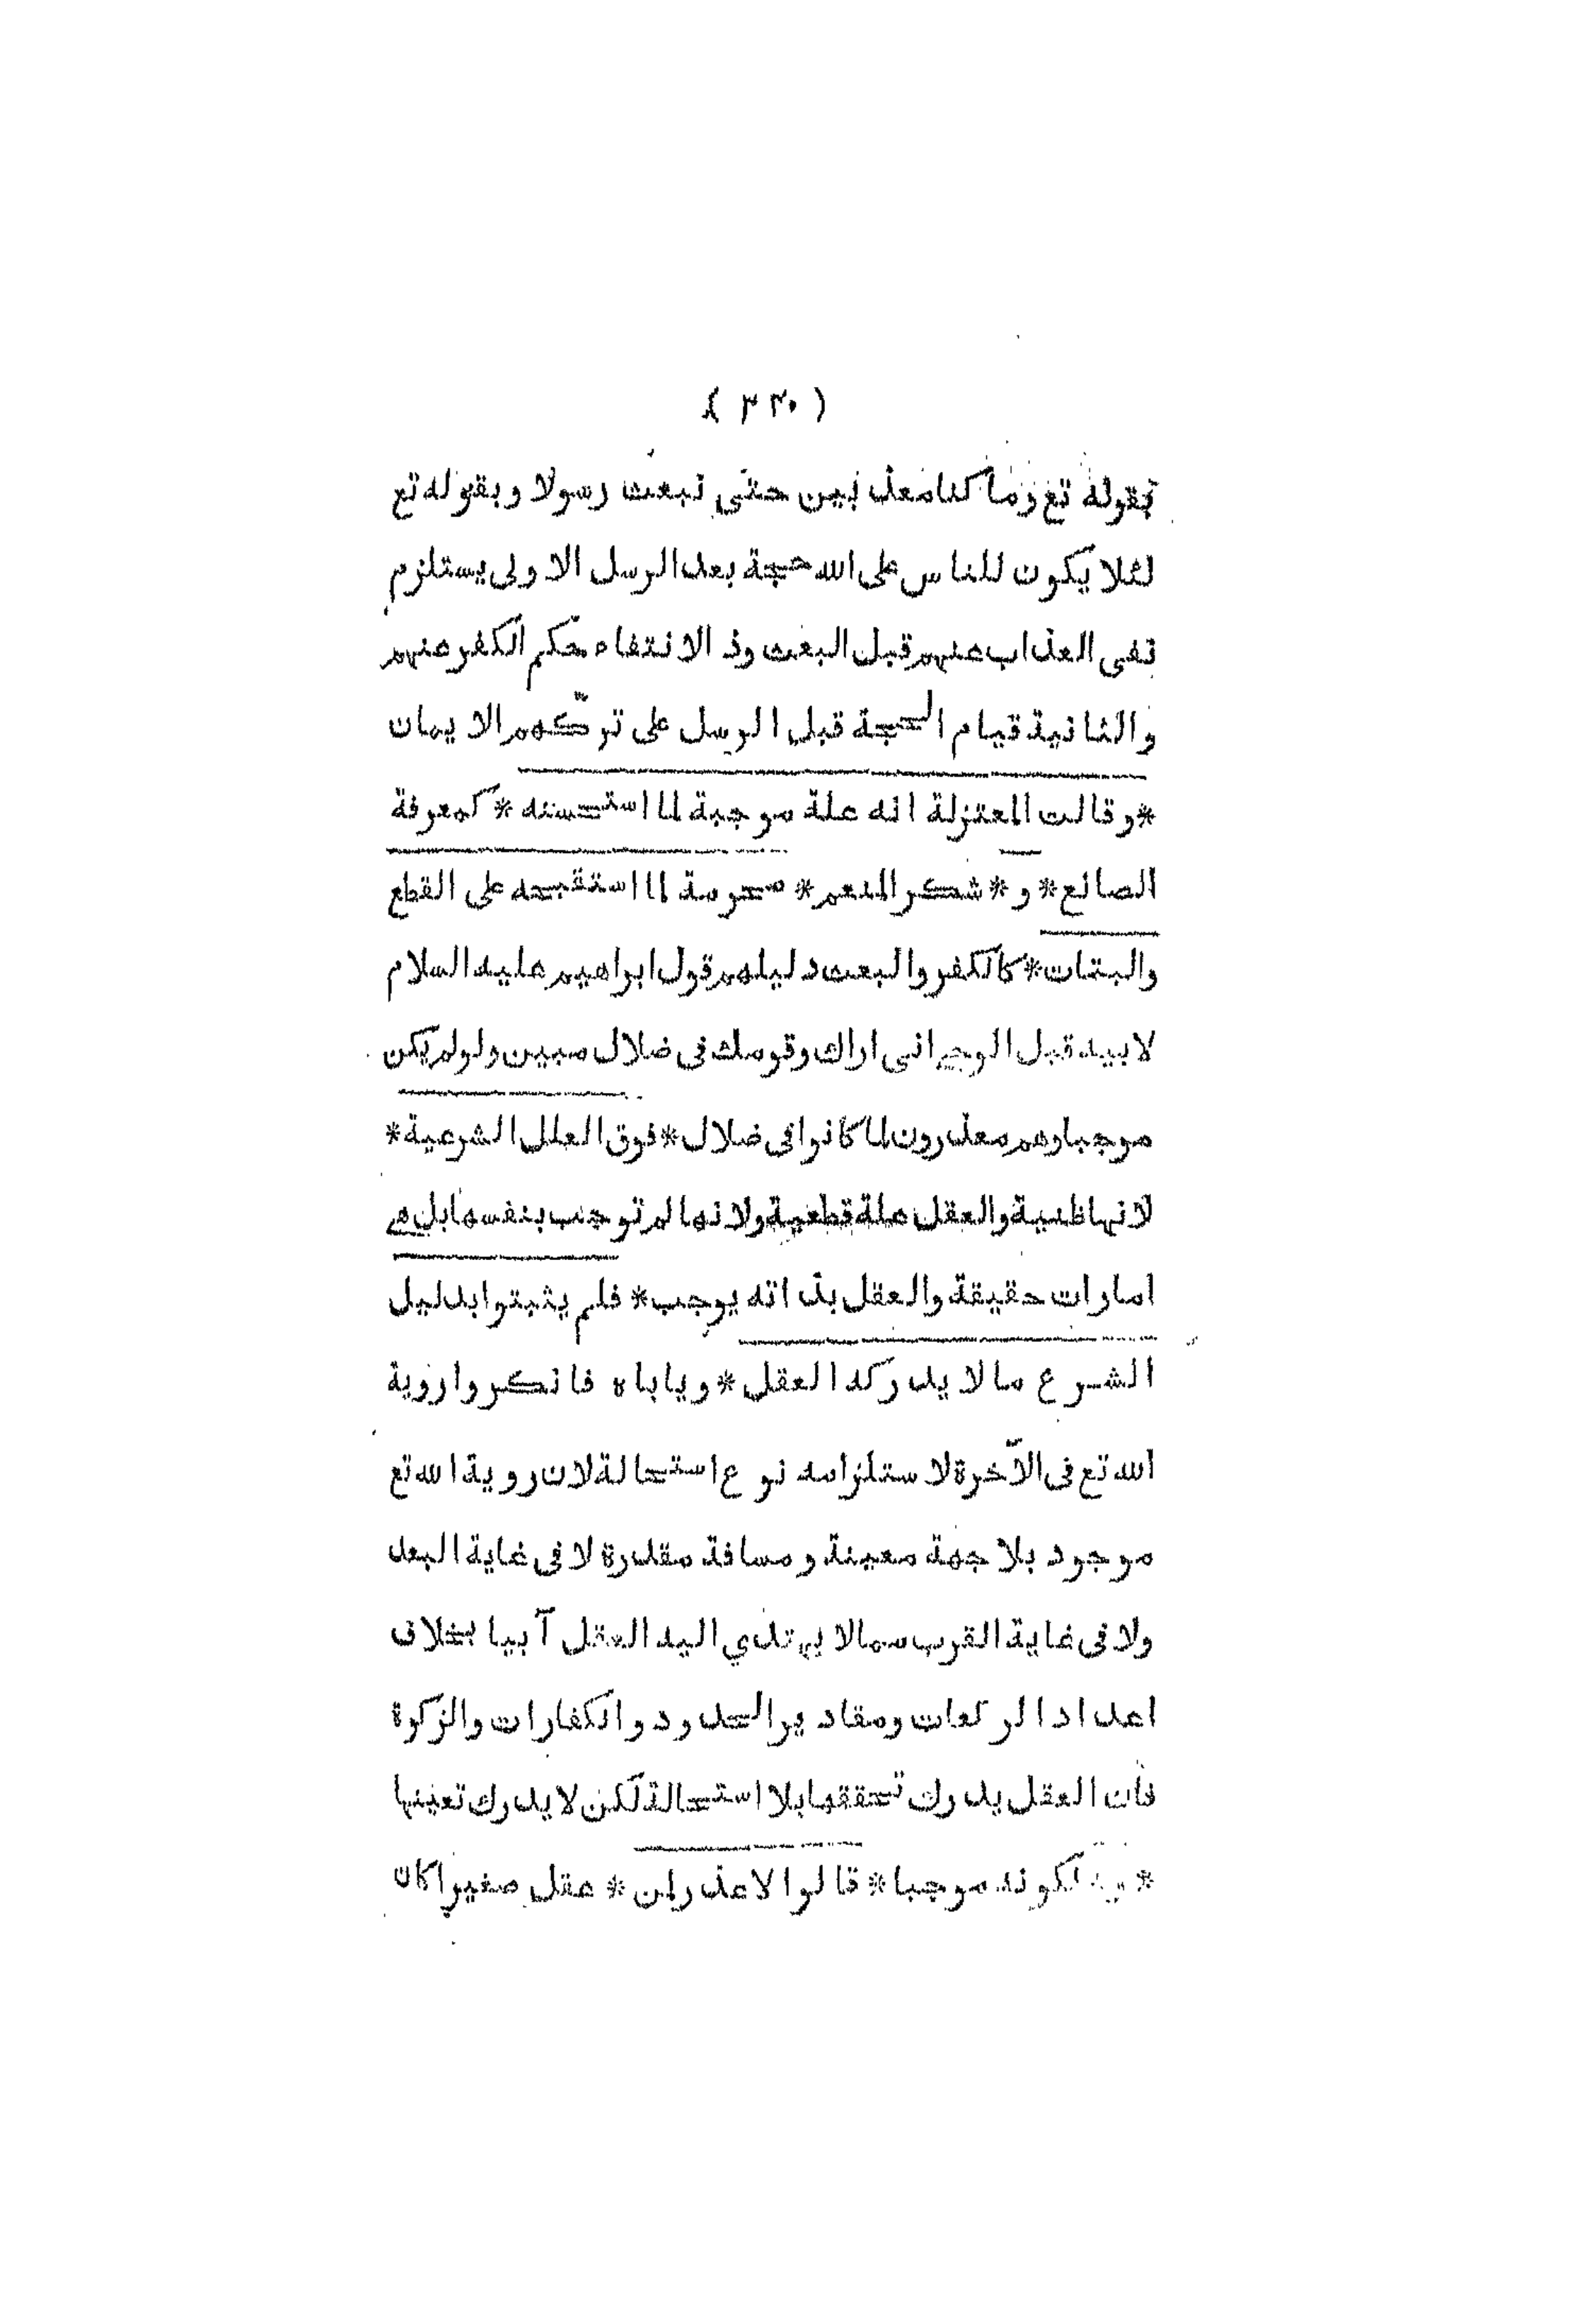 ( ٣٢٠ )
بقوله تع وما كنا معذبين حتى نبعث رسولا وبقوله تع
لئلا يكون للناس على الله حجة بعد الرسل الاولى يستلزم
نفى العذاب عنهم قبل البعث وذ الانتفاء حكم الكفر عنهم
والثانية قيام الحجة قبل الرسل على تركهم الايمان
*وقالت المعتزلة انه علة موجبة لما استحسنه* كمعرفة
الصانع* و*شكر المنعم* محرمة لما استقبحه على القطع
والبتات* كالكفر والبعث دليلهم قول ابراهيم عليه السلام
لابيه قبل الوحي انى اراك وقومك فى ضلال مبين ولو لم يكن
موجبا وهم معذرون لما كانوا فى ضلال*فوق العلل الشرعية*
لانها ظنية والعقل علة قطعية ولانها لم توجب بنفسها بل هي
امارات حقيقة والعقل بذاته يوجب* فلم يثبتوا بدليل
الشرع ما لا يدركه العقل* وياباه فانكروا روية
الله تع فى الآخرة لاستلزامه نوع استحالة لان روية الله تع
موجود بلا جهة معينة ومسافة مقدرة لا فى غاية البعد
ولا فى غاية القرب مما لا يهتدي اليه العقل آبيا بخلاف
اعداد الركعات ومقادير الحدود والكفارات والزكوة
فان العقل يدرك تحققها بلا استحالة لكن لا يدرك تعينها
* لكونه موجبا* قالوا لا عذر لمن* عقل صغيرا كان